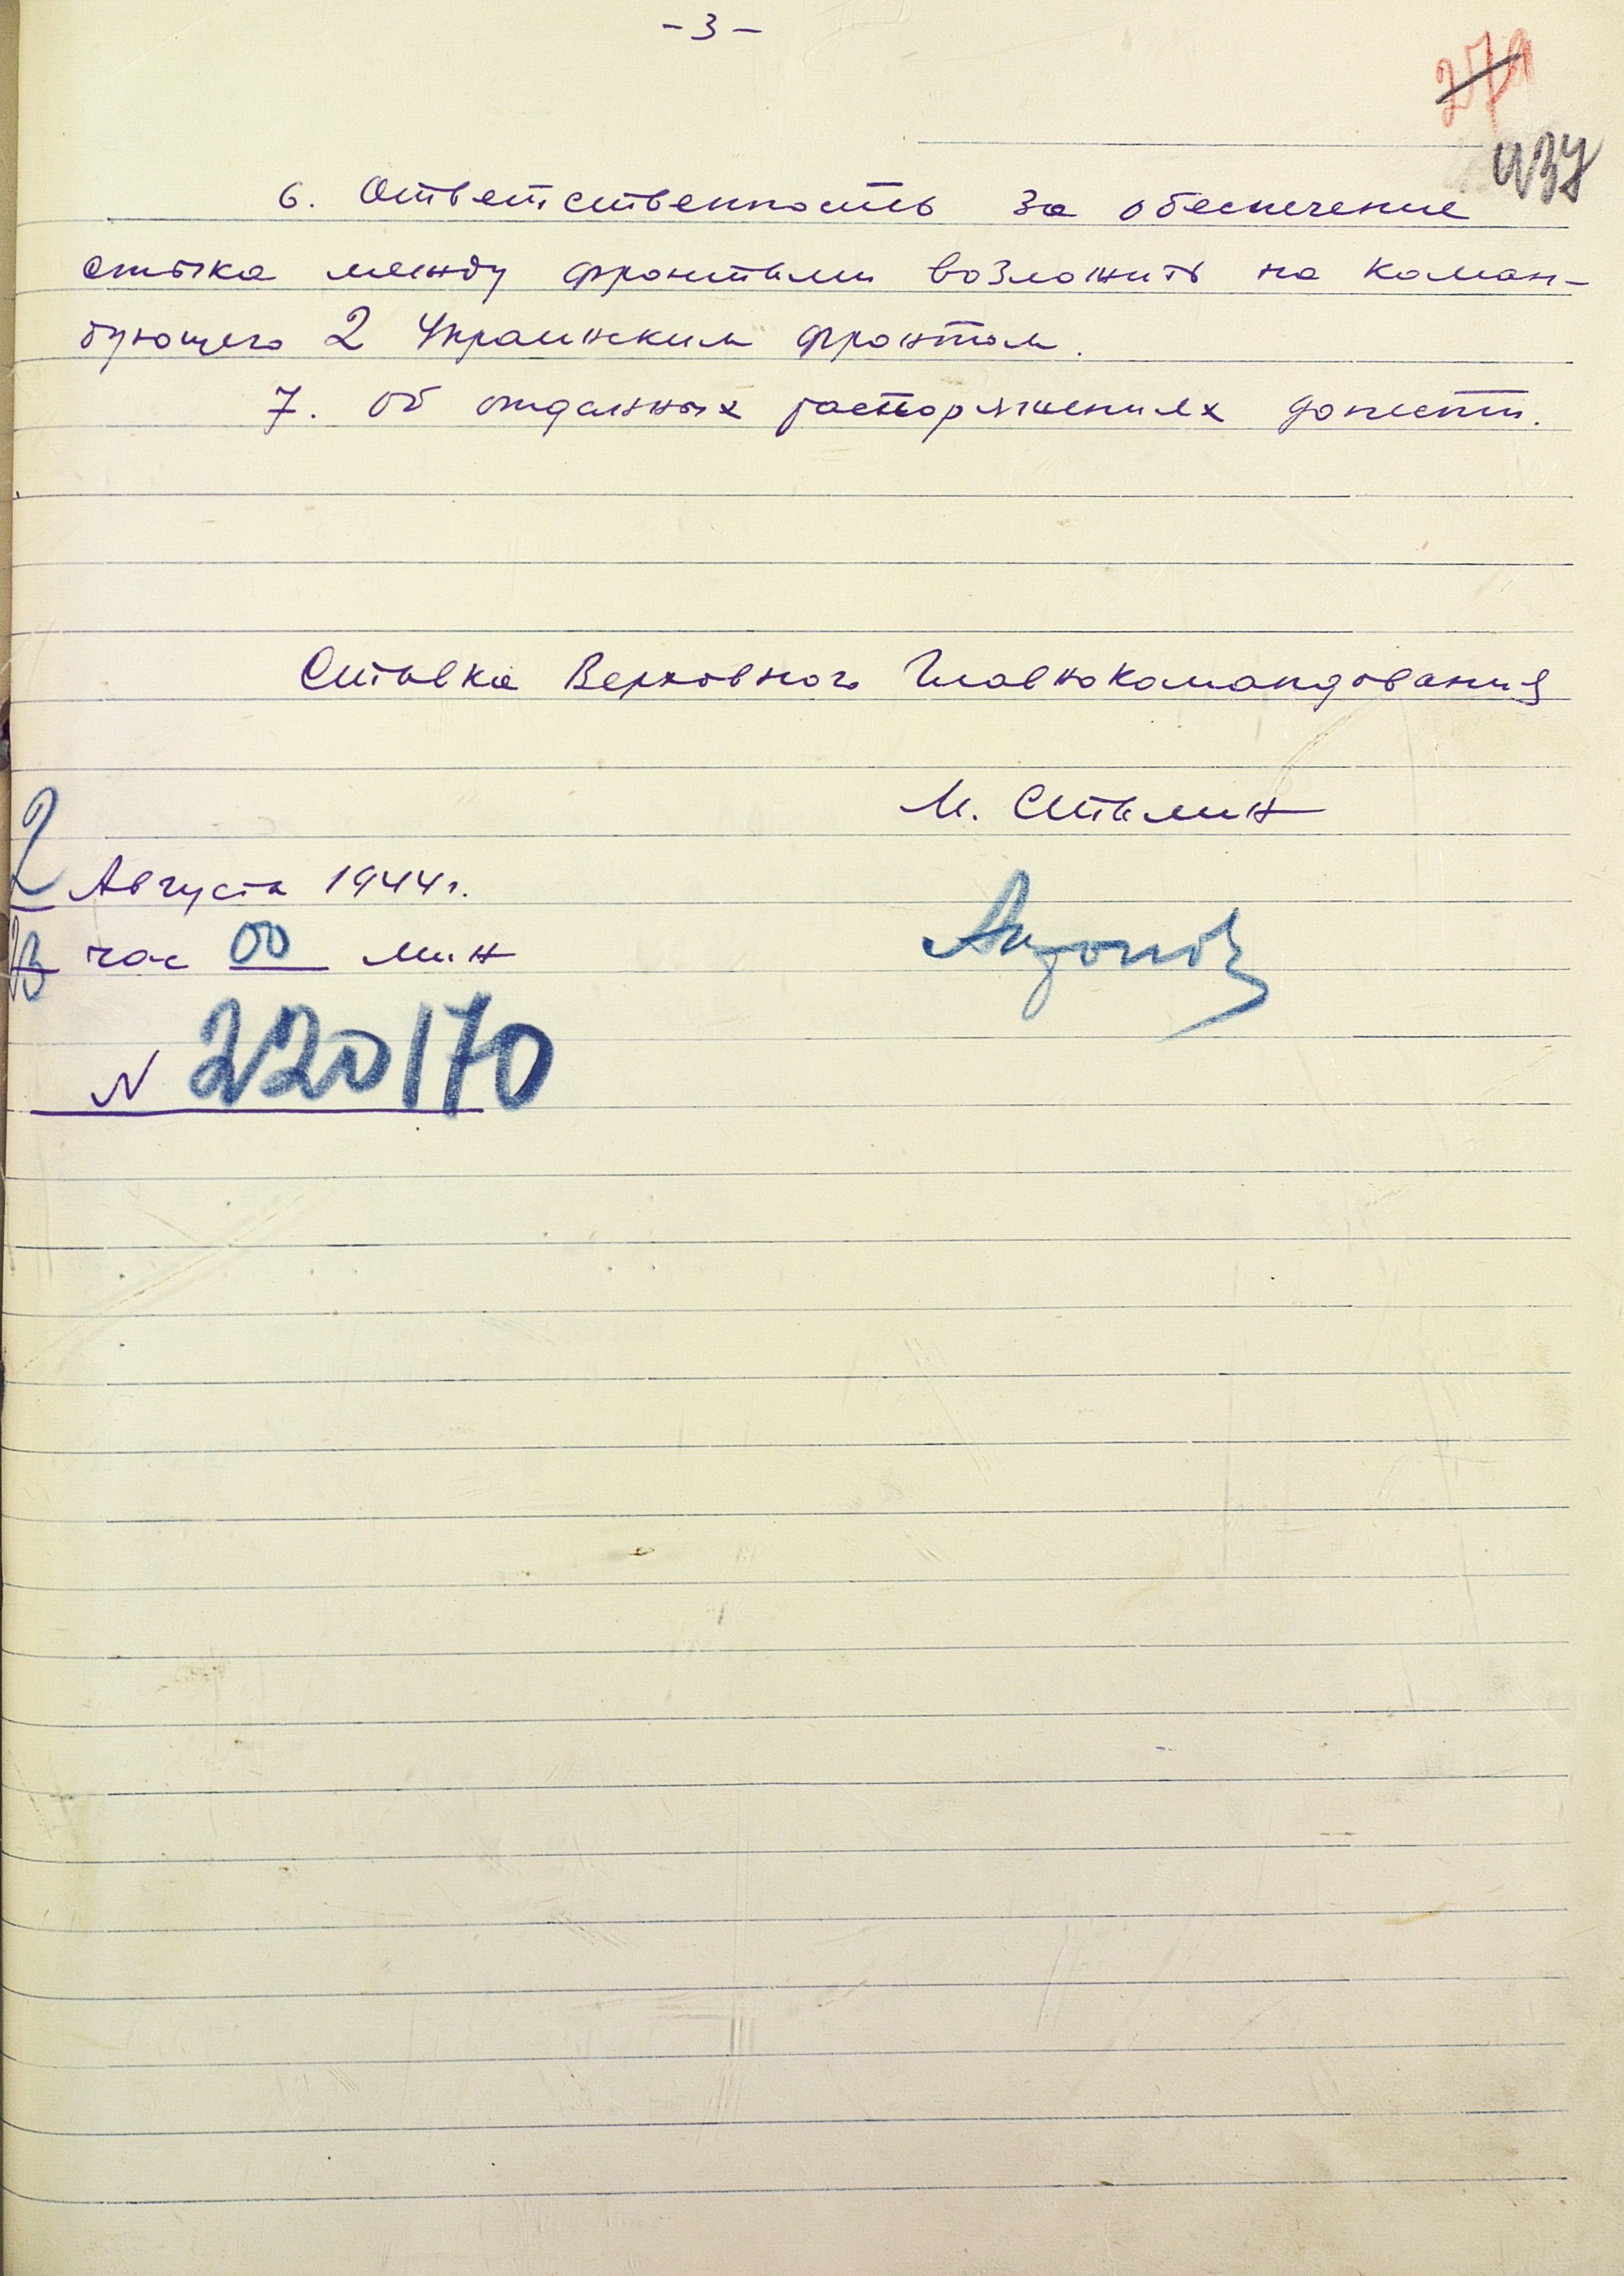 - 3 -
279
437
6. Ответственность за обеспечение
стыка между фронтами возложить на коман-
дующего 2 Украинским фронтом.
7. Об отданных распоряжениях донести.
Ставка Верховного Главнокомандования
И. Сталин
2 Августа 1944 г.
23 час 00 мин
Антонов
N 220170